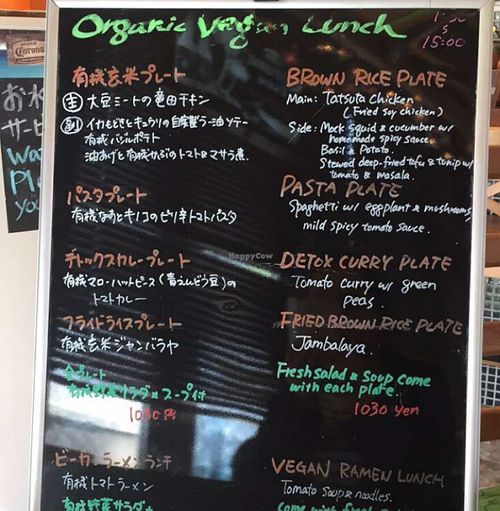 Organic Vegan Lunch
15:00
Corona
お水
サービ
Wa
Pl
yo
有機玄米プレート
主 大豆ミートの竜田チキン
副 イカもどきとキュウリの自家製ラー油ソテー
有機バジルポテト
油あげと有機かぶのトマト&マサラ煮.
BROWN RICE PLATE
Main: Tatsuta chicken
(Fried soy chicken)
Side: Mock squid & cucumber w/
homemade spicy sauce.
Basil & Potato.
Stewed deep-fried tofu & turnip w/
tomato & masala.
パスタプレート
有機なすとキノコのピリ辛トマトパスタ
PASTA PLATE
Spaghetti w/ eggplant & mushrooms,
mild spicy tomato sauce.
デトックスカレープレート
有機マロ・ハットピース(青えんどう豆)の
トマトカレー
DETOX CURRY PLATE
Tomato curry w/ green
peas.
フライドライスプレート
有機玄米ジャンバラヤ
FRIED BROWN RICE PLATE
Jambalaya.
プレート
有機野菜サラダ&スープ付
1030円
Fresh salad & Soup come
with each plate.
1030 yen
ビーガンラーメンランチ
有機トマトラーメン
有機野菜サラダ
VEGAN RAMEN LUNCH
Tomato soup & noodles.
HappyCow